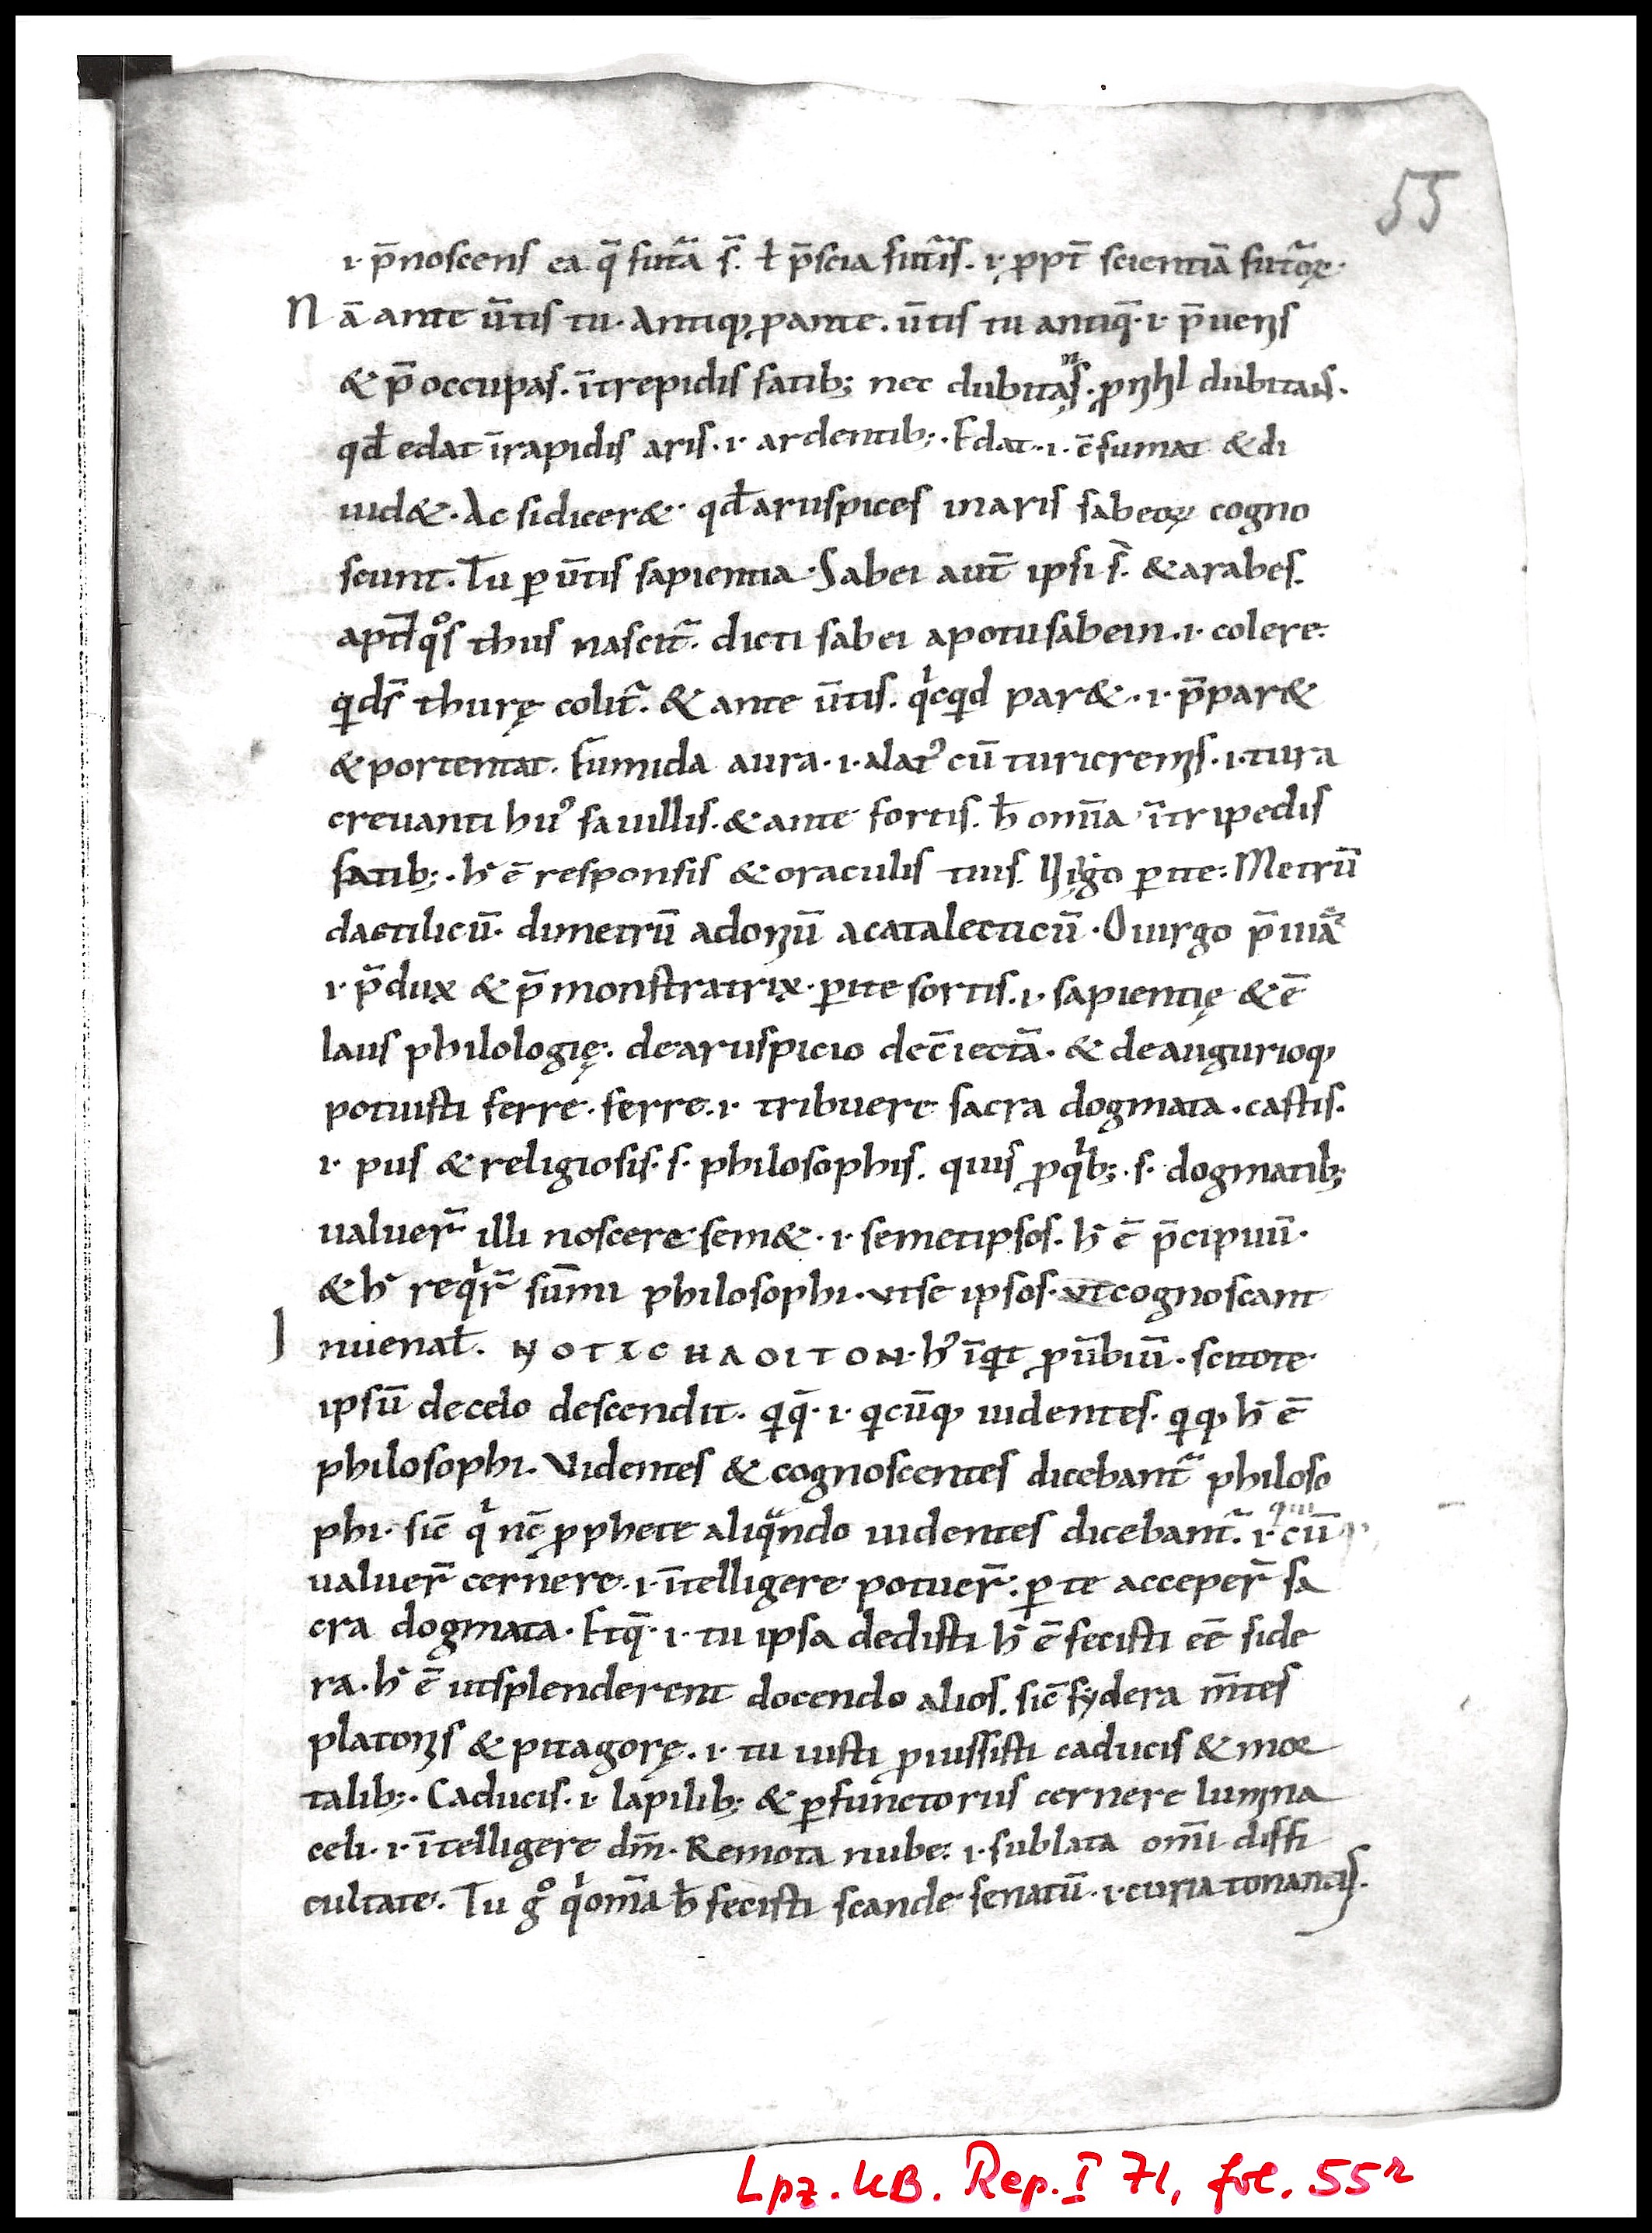 55
·i· p̄noscens ea q̄ futaᷓ s̄. ł p̄scia futisᷓ. ·i· ꝓpt̄ scientiā futoꝝᷓ·
Nā ante ūtis tu· Antiqꝫ pante. ūtis tu antiq̄·i· p̄uenis
& p̄occupas. ītrepidis fatibꝫ nec dubitans. ꝓ nihl dubitans.
qđ edat īrapidis aris ·i· ardentibꝫ. Edat ·i· c̄sumat & di
uid&. Ac sidicer& qđ aruspices inaris sabeoꝝ cogno
scunt. Tu p ūtis sapientia. Sabei aut̄ ipsi s̄. & arabes.
aput qͦs thus nascit᷑. dicti sabei apotusabein ·i· colere.
qd s̄ thurę colit᷑. & ante ūtis. qͥcqd par& ·i· p̄par&
& portentat. Fumida aura ·i· alat᷒ cū turicremis ·i· tura
creuantihu᷒ fauillis. & ante fortis. h̄ om̄ia ītripedis
fatibꝫ. h̄ ē responsis & oraculis tuis. Virgo perite: Metrū
dactilicū. dimetrū adoniū acatalecticū. O uirgo p̄uia
·i· p̄dux & p̄monstratrix. perite sortis ·i· sapientię & ē
laus philologię. dearuspicio dec̄iectā. & deaugurioqꝫ
potuisti ferre. ferre ·i· tribuere sacra dogmata. castis.
·i· piis & religiosis ·s· philosophis. quis ꝓ qͥbꝫ ·s· dogmatibꝫ
valuer̄ illi noscere sem& ·i· semetipsos. h̄ ē p̄cipuū.
& h̄ reqͥr̄ sūmi philosophi. vtse ipsos. vt cognoscant
Iuuenał. ΝΟΤΙС ΗΛΟΙΤΟΝ. h᷒ īqt ꝓūbiū. scitote
ipsū decelo descendit. qq̄ ·i· qcūqꝫ uidentes. qqꝫ h̄ ē
philosophi. Videntes & cognoscentes dicebant᷑ philoso
phi. sic̄ qͥ nc̄ ꝓphete aliqᵃndo uidentes dicebant᷑. ·i· qui cūqꝫ
valuer̄ cernere ·i· ītelligere potuer̄. p te acceper̄ sa
cra dogmata. Etq̄ ·i· tu ipsa dedisti h̄ ē fecisti eē side
ra. h̄ ē utsplenderent docendo alios. sic̄ sydera m̄tes
platonis & pitagorę ·i· tu iusti ꝓiussisti caducis & mor
talibꝫ. Caducis ·i· lapilibꝫ & pfunctorus cernere lumina
celi ·i· ītelligere dm̄. Remota nube: ·i· sublata om̄i diffi
cultate. Tu gͦ qͥ om̄a h̄ fecisti scande senatū ·i· curia tonantis.
Lpz. UB. Rep. I 71, fol. 55r